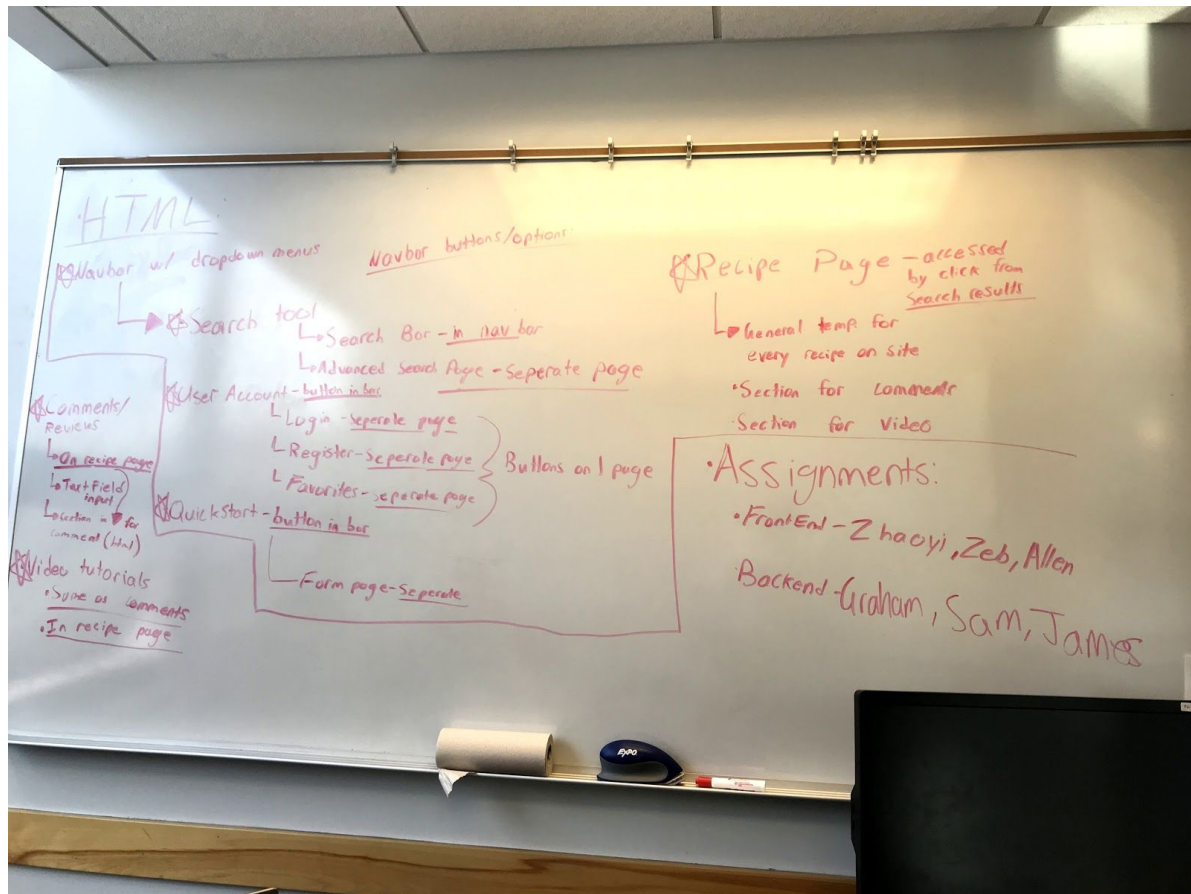 ·HTML
Navbar w/ dropdown menus
Navbar buttons/options:
Search tool
Search Bar - in nav bar
Advanced Search Page - Seperate page
User Account - button in bar
Login - Seperate page
Register - Seperate page
Favorites - seperate page
Buttons on 1 page
Quickstart - button in bar
Form page - Seperate
Comments/
Reviews
On recipe page
Text Field
input
Section in for
comment (html)
Video tutorials
·Same as comments
·In recipe page
Recipe Page - accessed
by click from
Search results
General temp. for
every recipe on site
·Section for comments
·Section for Video
·Assignments:
·FrontEnd - Zhaoyi, Zeb, Allen
Backend - Graham, Sam, James
EXPO